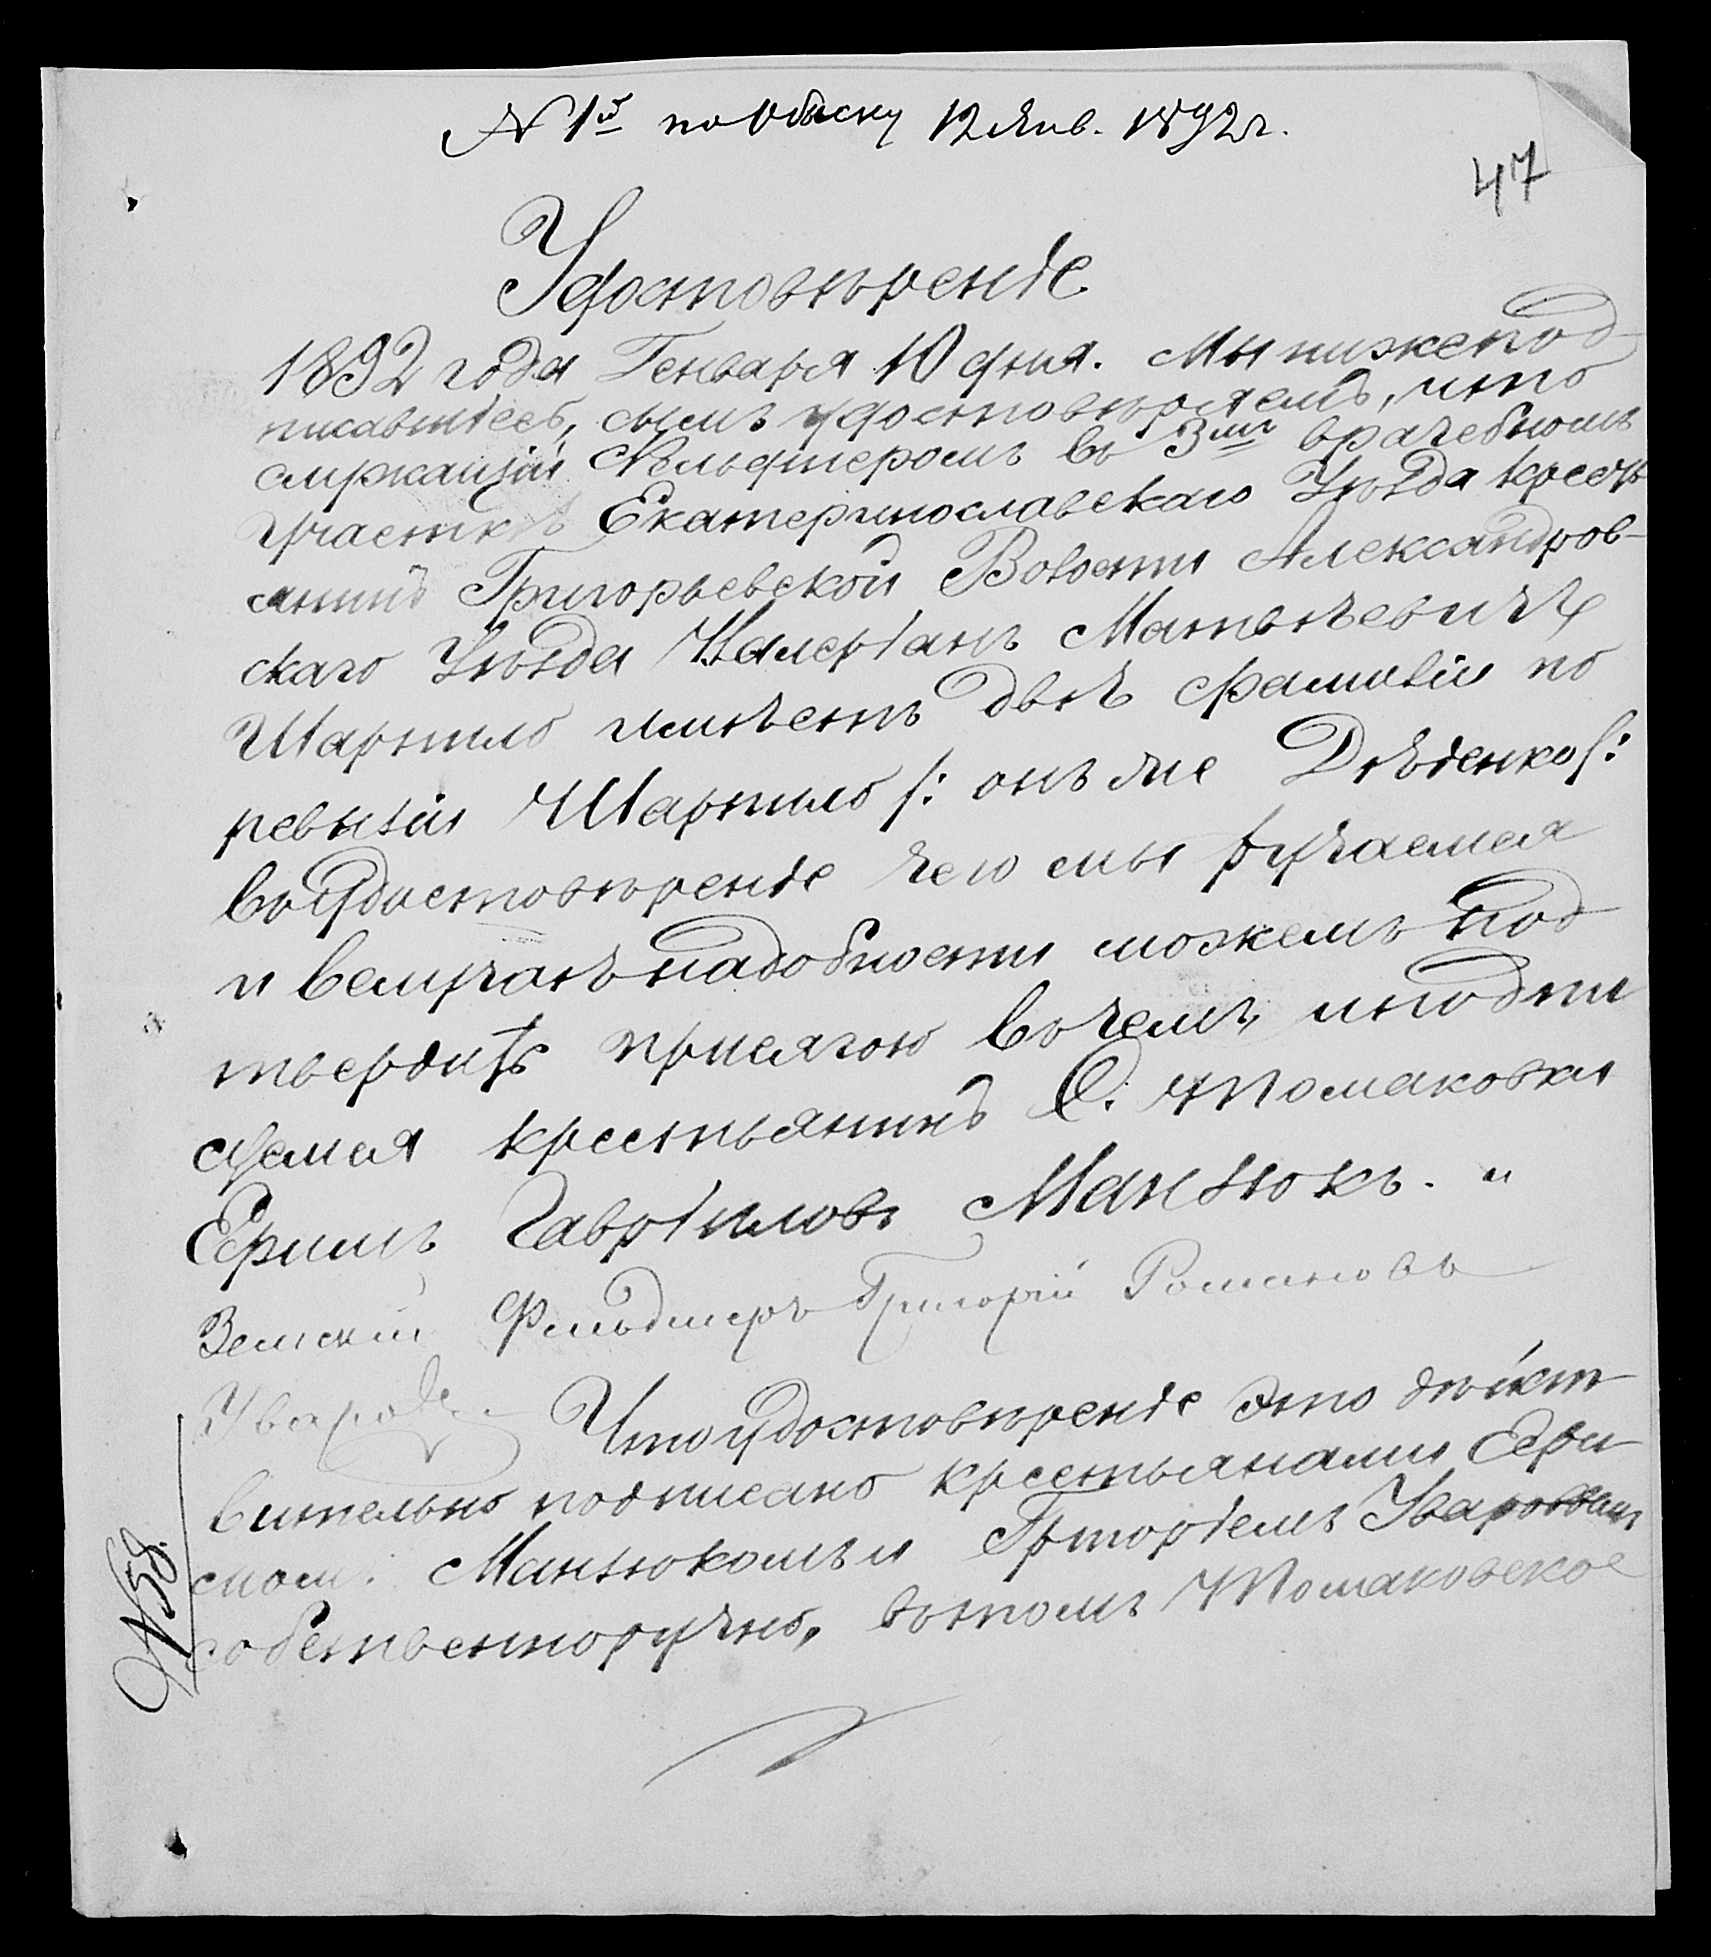 № 1й по Обыску 12 Янв. 1892 г.
47
Удостовѣреніе
1892 года Генваря 10 дня. Мы нижепод-
писавшіесь, сымъ удостовѣряемъ, что
служащій Фельдшеромъ въ 3мъ врачебномъ
участкѣ Екатеринославскаго Уѣзда кресть
янинъ Григорьевской Волости Александров-
скаго Уѣзда Валеріанъ Матвѣевичъ
Шарпило имѣетъ двѣ фамиліи по
ревизіи Шарпило /: онъ же Дѣденко /:
въ удостовѣреніе чего мы ручаемся
и въ случаѣ надобности можемъ под
твердить присягою въ чемъ, и подпи
суемся крестьянинъ С. Томаковки
Ефимъ Гавріиловъ Манзюкъ. и
Земскій Фельдшеръ Григорій Романовъ
Уваровъ
Что удостовѣреніе это дѣйст
вительно подписано крестьянами Ефи
момъ Манзюкомъ и Григоріемъ Уваровымъ
собственноручно, въ томъ Томаковское
№ 58.